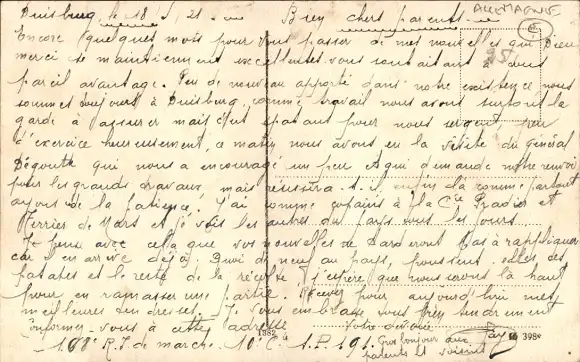 ALLEMAGNE
Duisburg, le 18 5 21 Bien chers parents
Encore quelques mots pour vous passer de mes nouvelles qui Dieu
merci se maintiennent excellentes vous souhaitant à tous
pareil avantage. Peu de nouveau apporté dans notre existence nous
sommes toujours à Duisburg, comme travail nous avons surtout la
garde à assurer mais c'est épatant pour nous
d'exercice heureusement, ce matin nous avons eu la visite du Général
Degoutte qui nous a encouragé un peu et qui demande notre renvoi
pour les grands travaux, mais réussira-t-il, enfin là comme partout
ayons de la patience. J'ai comme copains à la Cie Pradier et
Terrier de Mars et je vois les autres du pays tous les jours
Je pense avec cela que vos nouvelles ne tarderont pas à rappliquer
car il en arrive déjà. Quoi de neuf au pays, poussent-elles les
patates et le reste de la récolte, j'espère que nous serons là haut
pour en ramasser une partie. Recevez pour aujourd'hui mes
meilleures tendresses. Je vous embrasse tous bien tendrement
Votre dévoué
vous à cette adresse
1382
398
168e R.I. de marche. 10e Cie S.P. 191.
Gros bonjour aux
parents et voisins